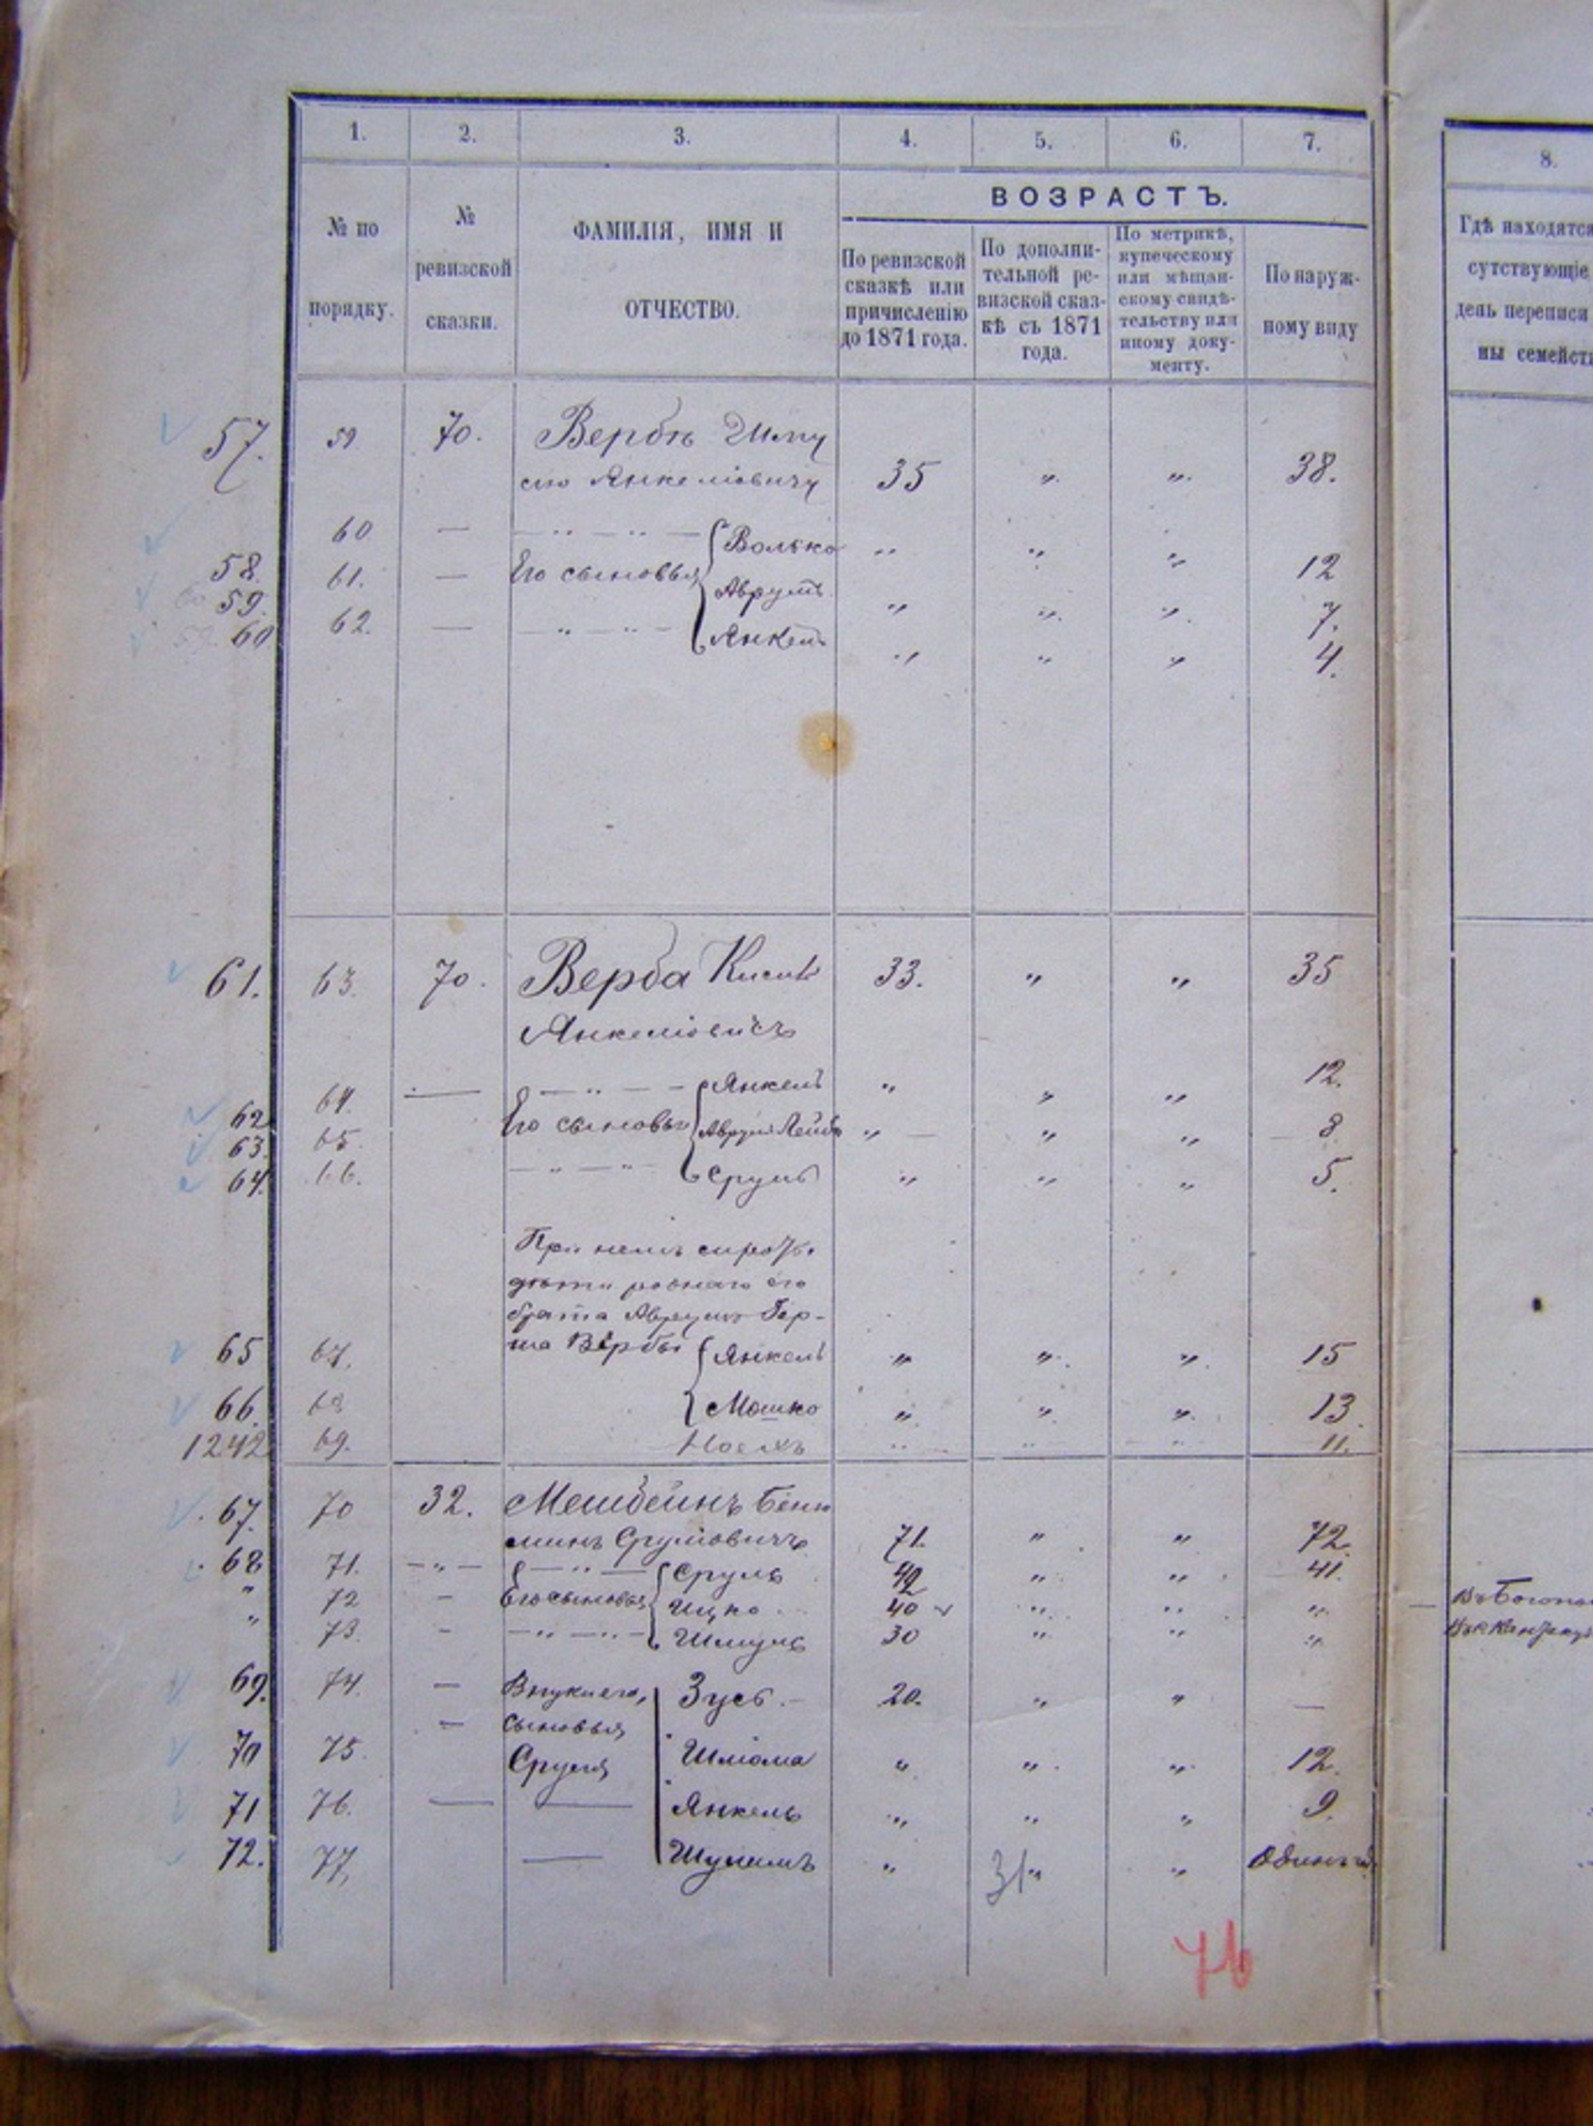 1. 2. 3. 4. 5. 6. 7. 8.
№ по порядку.
№ ревизской сказки.
ФАМИЛІЯ, ИМЯ И ОТЧЕСТВО.
ВОЗРАСТЪ.
По ревизской сказкѣ или причисленію до 1871 года.
По дополни-
тельной ре-
визской сказ-
кѣ съ 1871
года.
По метрикѣ,
купеческому
или мѣщан-
скому свидѣ-
тельству или
иному доку-
менту.
По наруж-
ному виду
Гдѣ находятся
сутствующіе
день переписи
ны семейст
57. 59 70. Верба Шму
сю Янкеліовичу 35 " " 38.
58. 60 — — " — " — Волько " " " 12
59. 61. — Его сыновья Аврумъ " " " 7.
60 62. — — " — " — Янкель " " " 4.
61. 63. 70. Верба 33. " " 35
Янкеліовичъ
62 64. — — " — — Янкель " " " 12.
63. 65. Его сыновья Аврумъ Лейба " " " 8
64. 66. — " — " — Сруль " " " 5.
При немъ сироты
дѣти роднаго его
брата Аврумъ Гер-
65 67. Вербы Янкель " " " 15
66. 68 Мошко " " " 13
1242 69. " " " 11.
67. 70 32. Бени
минъ Сруліовичъ 71. " " 72.
68 71. — " — — " — Сруль " " 41.
" 72 — Его сыновья Ицко 40 " " "
" 73. — — " — " — Шмуль 30 " " "
69. 74. — Внуки его, Зусь. — 20. " " —
— сыновья
70 75. Сруля Шліома " " " 12.
71 76. — — Янкель " " " 9.
72. 77. — " 31 " "
76